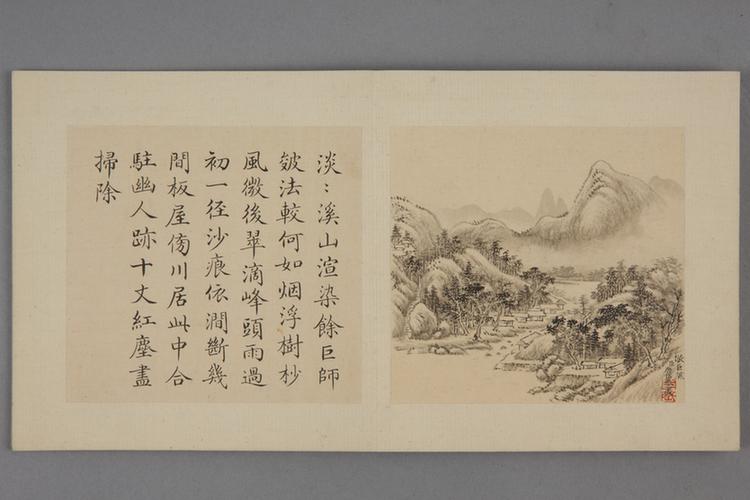 淡〻溪山渲染餘巨師
皴法較何如烟浮樹杪
風微後翠滴峰頭雨過
初一徑沙痕依澗斷幾
間板屋傍川居此中合
駐幽人跡十丈紅塵盡
掃除